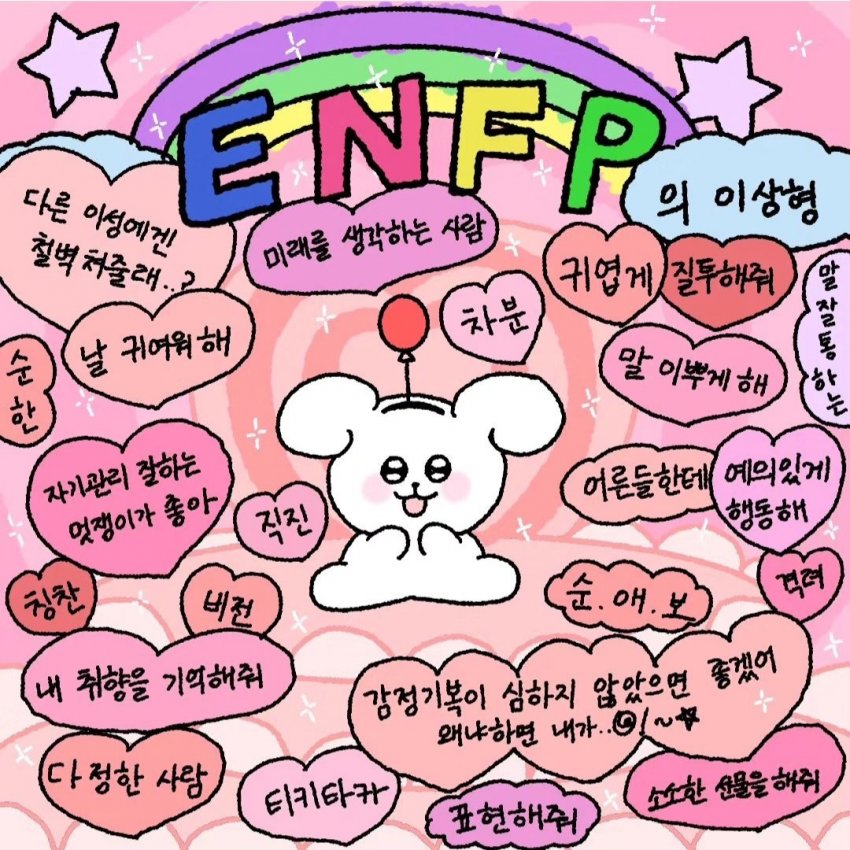 ENFP
의 이상형
다른 이성에겐
철벽 쳐줄래..?
미래를 생각하는 사람
귀엽게
질투해줘
말 잘 통하는
차분
순한
날 귀여워 해
말 이쁘게 해
자기관리 잘하는
멋쟁이가 좋아
직진
어른들한테
예의있게
행동해
칭찬
비전
순.애.보
격려
내 취향을 기억해줘
감정기복이 심하지 않았으면 좋겠어
왜냐하면 내가..!~
다정한 사람
티키타카
표현해줘
소소한 선물을 해줘